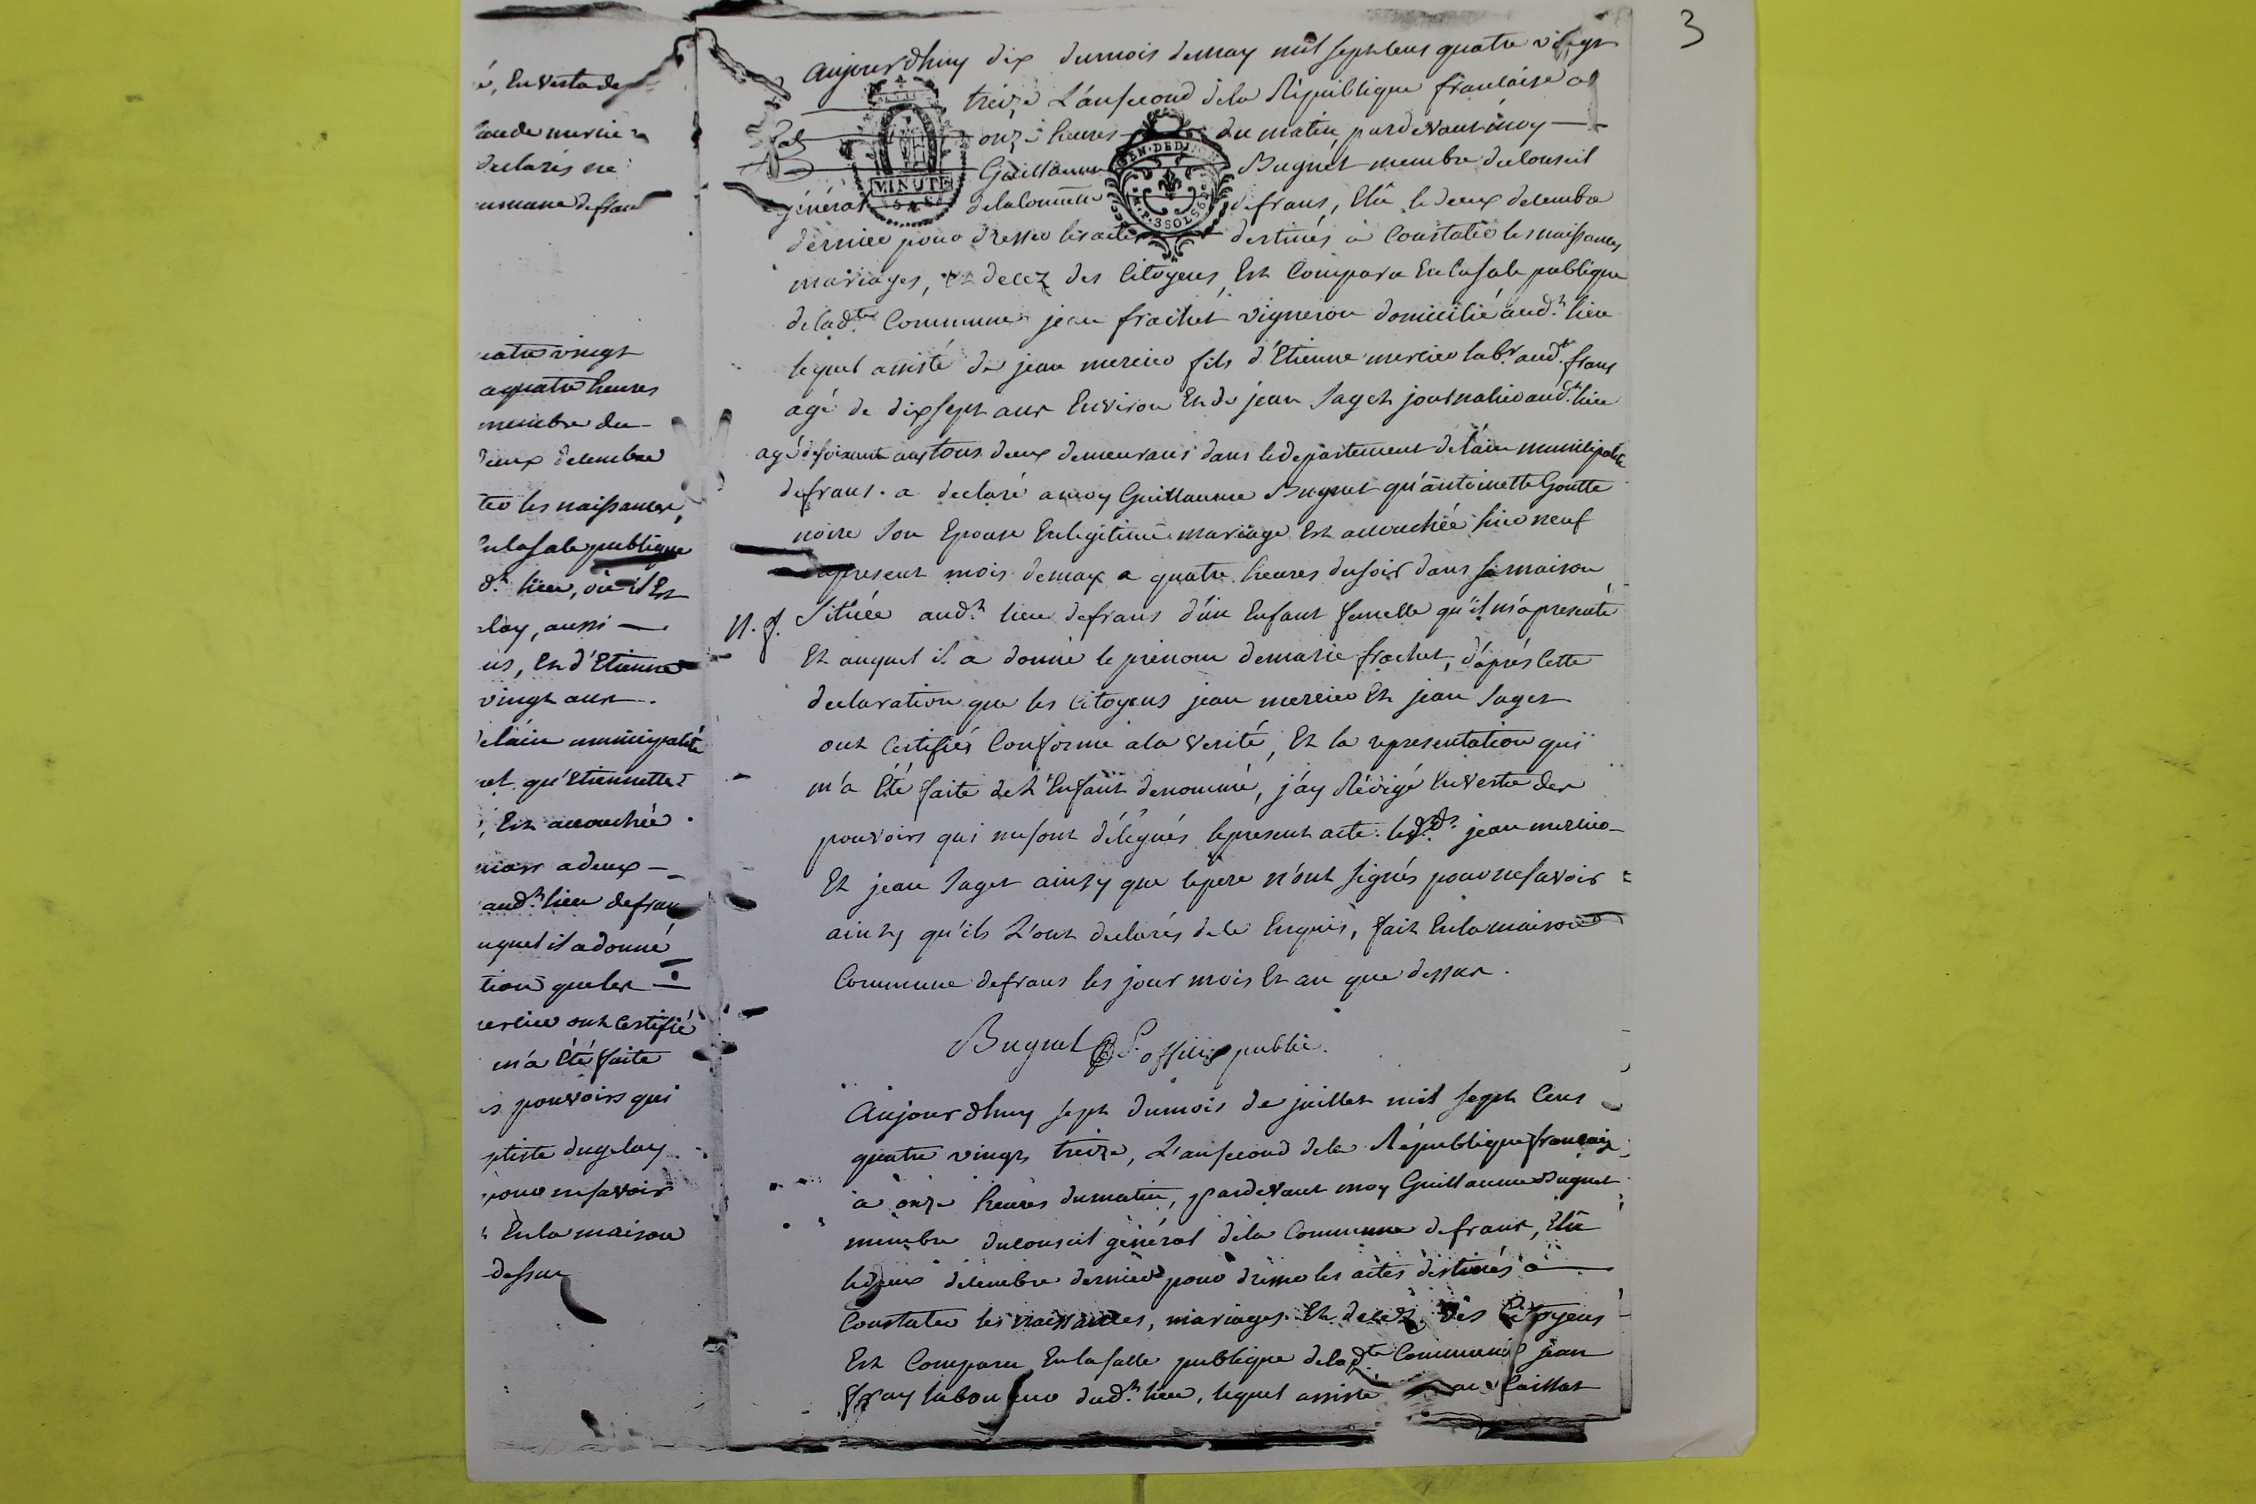 3
é, En Vertu des
declarés ne
quatre vingt
a quatre heures
membre du
deux decembre
les naissances,
En la sale publique
dt. lieu, où il Est
lay, aussi
us, Et d'Etienne
vingt ans.
de l'ain municipalité
qu'Etiennette
, Est accouchée
mars a deux
audt. lieu de frans
auquel il a donné
tion que les
mercier ont Certifié
m'a Eté faite
s pouvoirs qui
ptiste dugelay
pour ne savoir
En la maison
dessus
Aujourdhuy dix du mois de may mil sept cens quatre vingt
treize L'an second de la République francaise a
onze heures du matin, pardevant moy
MINUTE
GEN. DEDJ
3 SOLS 6 D
Guillaume Buguet membre du Conseil
général de la Commune de frans, Elû le deux decembre
dernier pour dresser les actes destinés à Constater les naissances
mariages, et decez des Citoyens, Est Comparu En la sale publique
de ladte. Commune jean frachet vigneron domicilié audt. lieu
lequel assisté de jean mercier fils d'Etienne mercier labr. audt. frans
agé de dix sept ans Environ Et de jean Saget journalier audt. lieu
agé de soixante ans tous deux demeurans dans le departement de l'ain municipalité
de frans. a declaré a moy Guillaume Buguet qu'antoinette Goutte
noire son Epouse En legitime mariage Est accouchée hier neuf
du present mois de may a quatre heures du soir dans sa maison
Située audt. lieu de frans d'un Enfant femelle qu'il m'a presenté
N. f.
Et auquel il a donné le prenom de marie frachet, d'aprés Cette
declaration que les Citoyens jean mercier Et jean Saget
ont Certifiés Conforme a la verité, Et la representation qui
m'a Eté faite de l'Enfant denommé, j'ay Rédigé En vertu des
pouvoirs qui me sont délégués le present acte. lesds. jean mercier
Et jean Saget ainsy que le pere n'ont signés pour ne savoir
ainsy qu'ils L'ont declarés de ce Enquis, fait En la maison
Commune de frans les jour mois Et an que dessus.
Buguet officier public.
Aujourdhuy sept du mois de juillet mil sept Cens
quatre vingts treize, L'an second de la République francaise
a onze heures du matin, pardevant moy Guillaume Buguet
membre du Conseil général de la Commune de frans, Elû
le deux decembre dernier pour dresser les actes destinés à
Constater les naissances, mariages Et decez des Citoyens
Est Comparu En la salle publique de ladte. Commune jean
fray laboureur dudt. lieu, lequel assisté Caillat